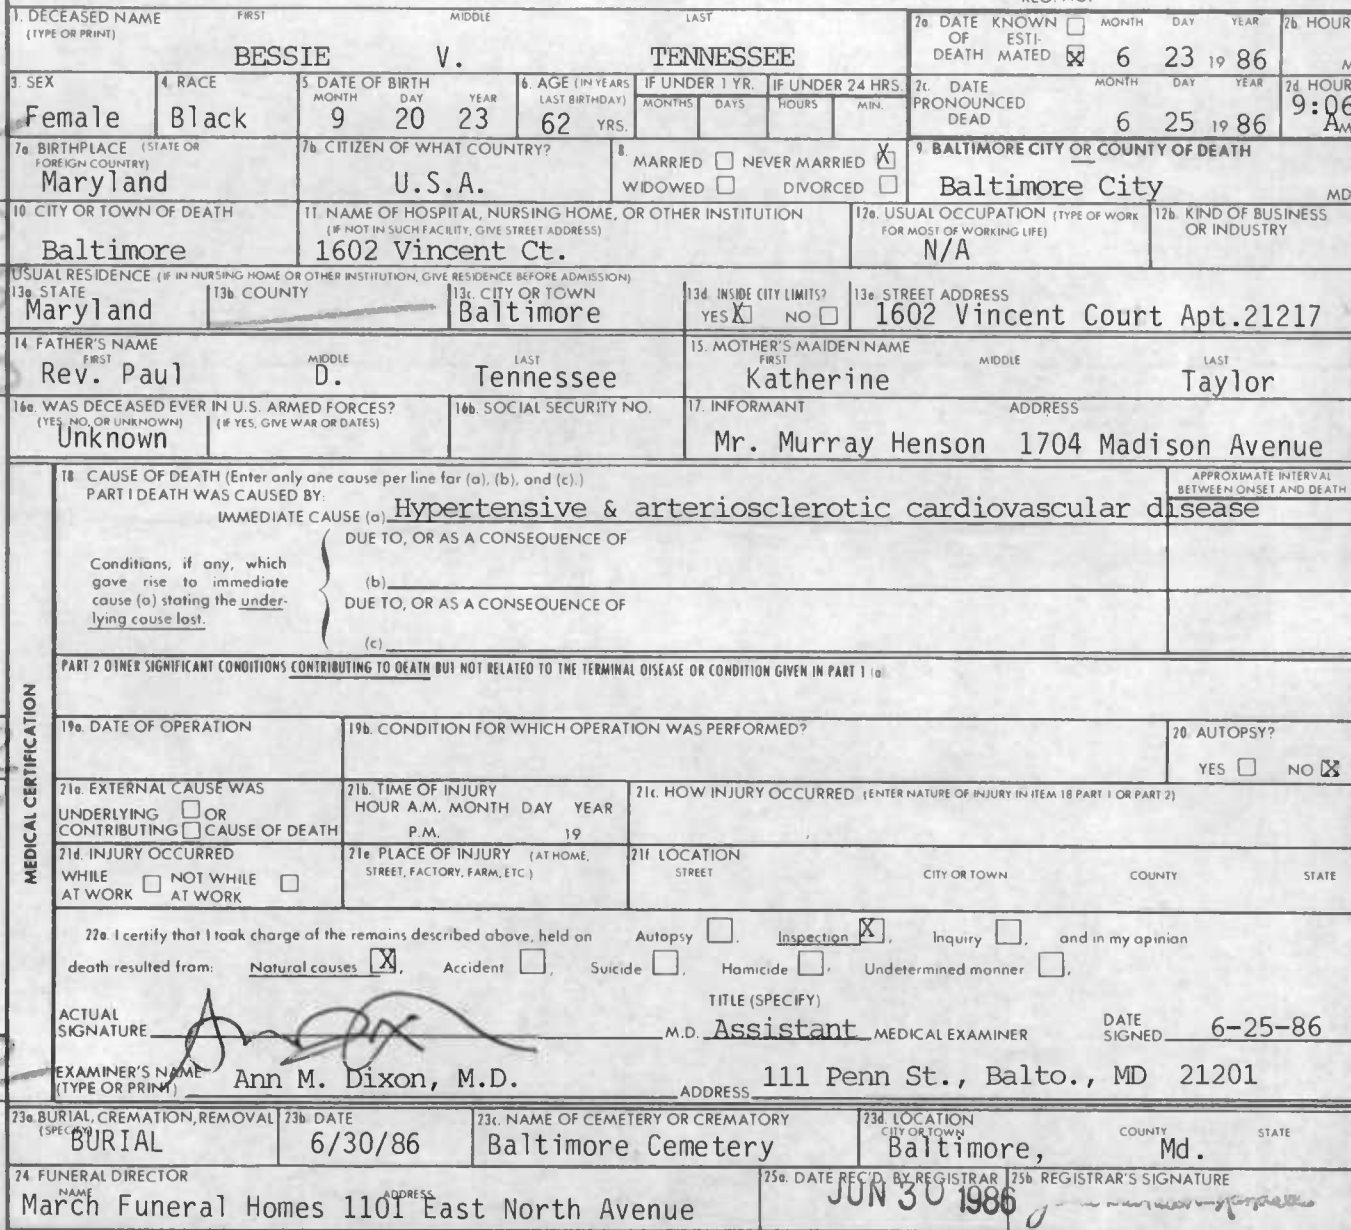 1. DECEASED NAME FIRST MIDDLE LAST
(TYPE OR PRINT)
BESSIE V. TENNESSEE
2a DATE KNOWN ☐ MONTH DAY YEAR
OF ESTI-
DEATH MATED ☒ 6 23 19 86
2b HOUR
M
3. SEX
Female
4. RACE
Black
5 DATE OF BIRTH
MONTH DAY YEAR
9 20 23
6. AGE (IN YEARS
LAST BIRTHDAY)
62 YRS.
IF UNDER 1 YR.
MONTHS DAYS
IF UNDER 24 HRS.
HOURS MIN.
2c. DATE MONTH DAY YEAR
PRONOUNCED
DEAD
6 25 19 86
2d HOUR
9:06
AM
7a BIRTHPLACE (STATE OR
FOREIGN COUNTRY)
Maryland
7b CITIZEN OF WHAT COUNTRY?
U.S.A.
8.
MARRIED ☐ NEVER MARRIED ☒
WIDOWED ☐ DIVORCED ☐
9. BALTIMORE CITY OR COUNTY OF DEATH
Baltimore City
MD
10 CITY OR TOWN OF DEATH
Baltimore
11. NAME OF HOSPITAL, NURSING HOME, OR OTHER INSTITUTION
(IF NOT IN SUCH FACILITY, GIVE STREET ADDRESS)
1602 Vincent Ct.
12a. USUAL OCCUPATION (TYPE OF WORK
FOR MOST OF WORKING LIFE)
N/A
12b. KIND OF BUSINESS
OR INDUSTRY
USUAL RESIDENCE (IF IN NURSING HOME OR OTHER INSTITUTION, GIVE RESIDENCE BEFORE ADMISSION)
13a STATE
Maryland
13b COUNTY
13c. CITY OR TOWN
Baltimore
13d. INSIDE CITY LIMITS?
YES ☒ NO ☐
13e STREET ADDRESS
1602 Vincent Court Apt.21217
14 FATHER'S NAME
FIRST MIDDLE LAST
Rev. Paul D. Tennessee
15. MOTHER'S MAIDEN NAME
FIRST MIDDLE LAST
Katherine Taylor
16a. WAS DECEASED EVER IN U.S. ARMED FORCES?
(YES, NO, OR UNKNOWN) (IF YES, GIVE WAR OR DATES)
Unknown
16b. SOCIAL SECURITY NO.
17. INFORMANT ADDRESS
Mr. Murray Henson 1704 Madison Avenue
MEDICAL CERTIFICATION
18 CAUSE OF DEATH (Enter only one cause per line for (a), (b), and (c).)
PART I DEATH WAS CAUSED BY:
APPROXIMATE INTERVAL
BETWEEN ONSET AND DEATH
IMMEDIATE CAUSE (a) Hypertensive & arteriosclerotic cardiovascular disease
DUE TO, OR AS A CONSEQUENCE OF
Conditions, if any, which
gave rise to immediate
cause (a) stating the under-
lying cause last.
(b)
DUE TO, OR AS A CONSEQUENCE OF
(c)
PART 2 OTHER SIGNIFICANT CONDITIONS CONTRIBUTING TO DEATH BUT NOT RELATED TO THE TERMINAL DISEASE OR CONDITION GIVEN IN PART 1 (a)
19a. DATE OF OPERATION
19b. CONDITION FOR WHICH OPERATION WAS PERFORMED?
20. AUTOPSY?
YES ☐ NO ☒
21a. EXTERNAL CAUSE WAS
UNDERLYING ☐ OR
CONTRIBUTING ☐ CAUSE OF DEATH
21b. TIME OF INJURY
HOUR A.M. MONTH DAY YEAR
P.M. 19
21c. HOW INJURY OCCURRED (ENTER NATURE OF INJURY IN ITEM 18 PART 1 OR PART 2)
21d. INJURY OCCURRED
WHILE ☐ NOT WHILE ☐
AT WORK AT WORK
21e PLACE OF INJURY (AT HOME,
STREET, FACTORY, FARM, ETC)
21f LOCATION
STREET CITY OR TOWN COUNTY STATE
22a. I certify that I took charge of the remains described above, held on Autopsy ☐, Inspection ☒, Inquiry ☐, and in my opinion
death resulted from: Natural causes ☒, Accident ☐, Suicide ☐, Homicide ☐, Undetermined manner ☐.
ACTUAL
SIGNATURE
TITLE (SPECIFY)
M.D. Assistant MEDICAL EXAMINER
DATE
SIGNED 6-25-86
EXAMINER'S NAME
(TYPE OR PRINT) Ann M. Dixon, M.D.
ADDRESS 111 Penn St., Balto., MD 21201
23a. BURIAL, CREMATION, REMOVAL
(SPECIFY)
BURIAL
23b. DATE
6/30/86
23c. NAME OF CEMETERY OR CREMATORY
Baltimore Cemetery
23d. LOCATION
CITY OR TOWN COUNTY STATE
Baltimore, Md.
24 FUNERAL DIRECTOR
NAME ADDRESS
March Funeral Homes 1101 East North Avenue
25a. DATE REC'D. BY REGISTRAR
JUN 30 1986
25b REGISTRAR'S SIGNATURE